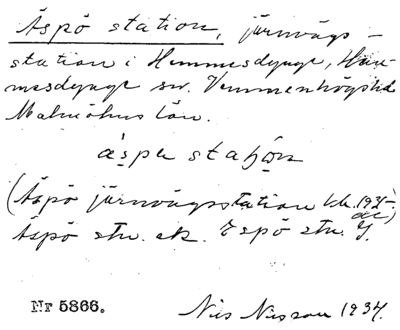 Äspö station, järnvägs-
station i Hemmesdynge, Hem-
mesdynge sn. Vemmenhögs hd
Malmöhus län.
äspe station
(Äspö järnvägsstation tdr. 1925
Äspö stn. ek. Espö stn. J.
Nr 5866. Nils Nilsson 1934.